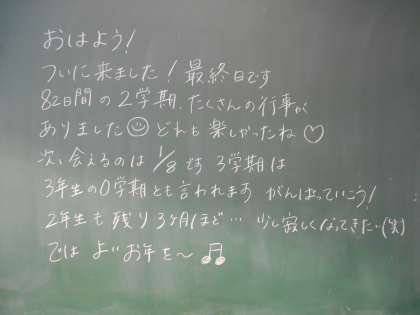 おはよう!
ついに来ました! 最終日です
82日間の2学期、たくさんの行事が
ありました☺ どれも楽しかったね♡
次、会えるのは 1/8 です 3学期は
3年生の0学期とも言われます がんばっていこう!
2年生も残り3ヶ月ほど… 少し寂しくなってきた…(笑)
では よいお年を〜♫